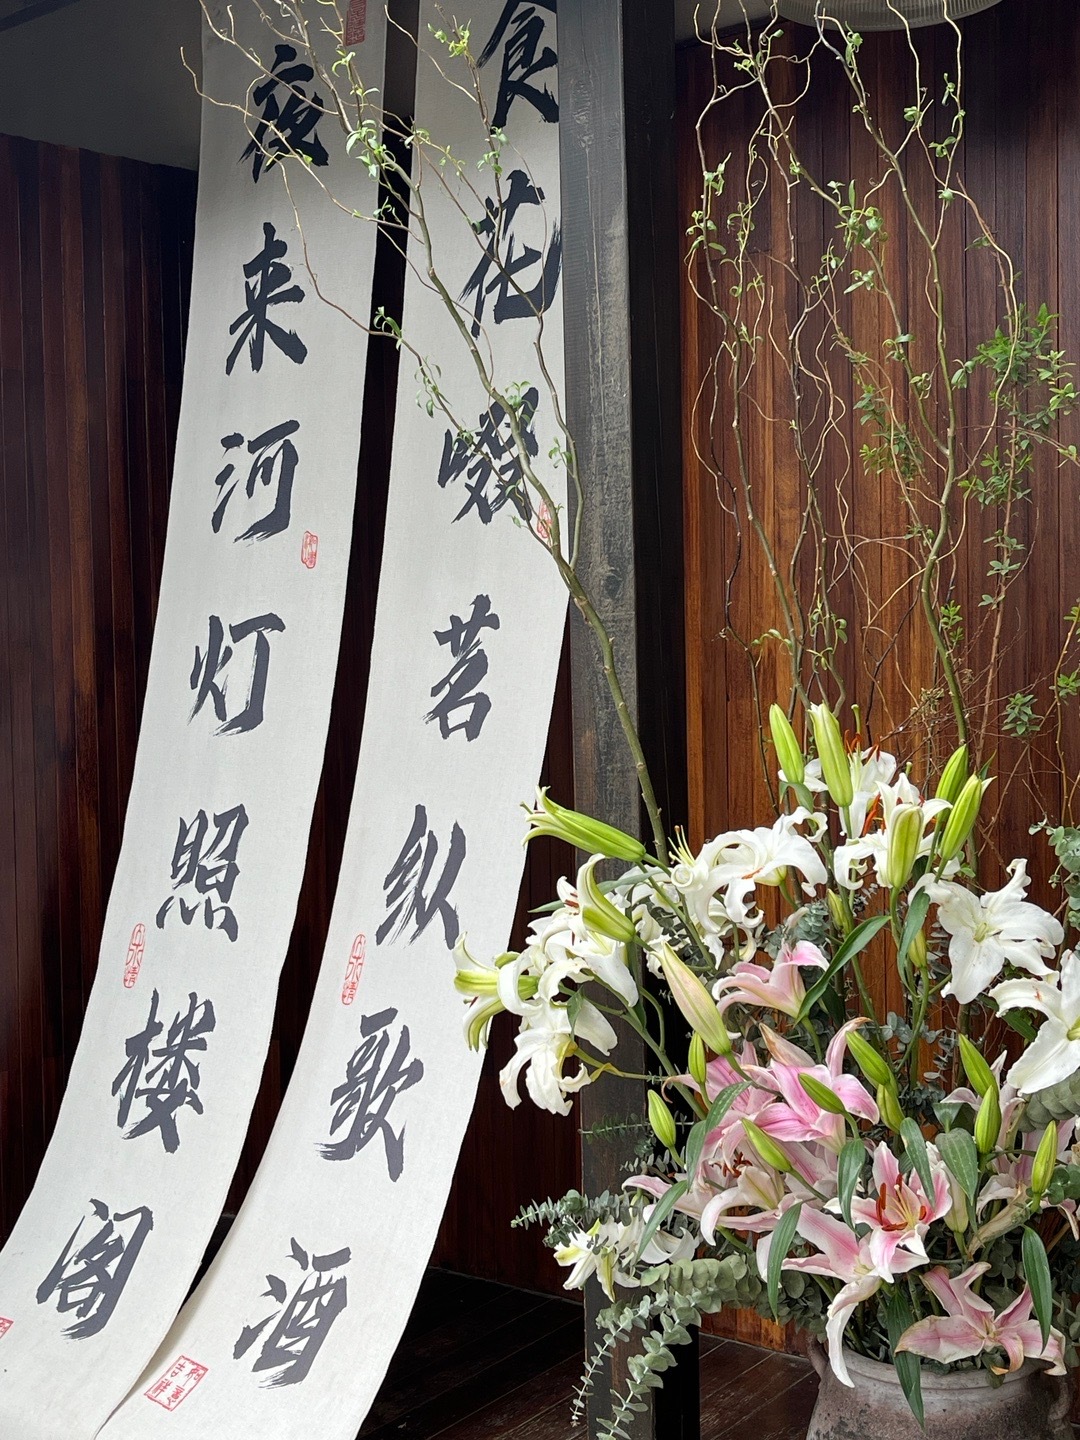 食花啜茗纵歌酒
夜来河灯照楼阁